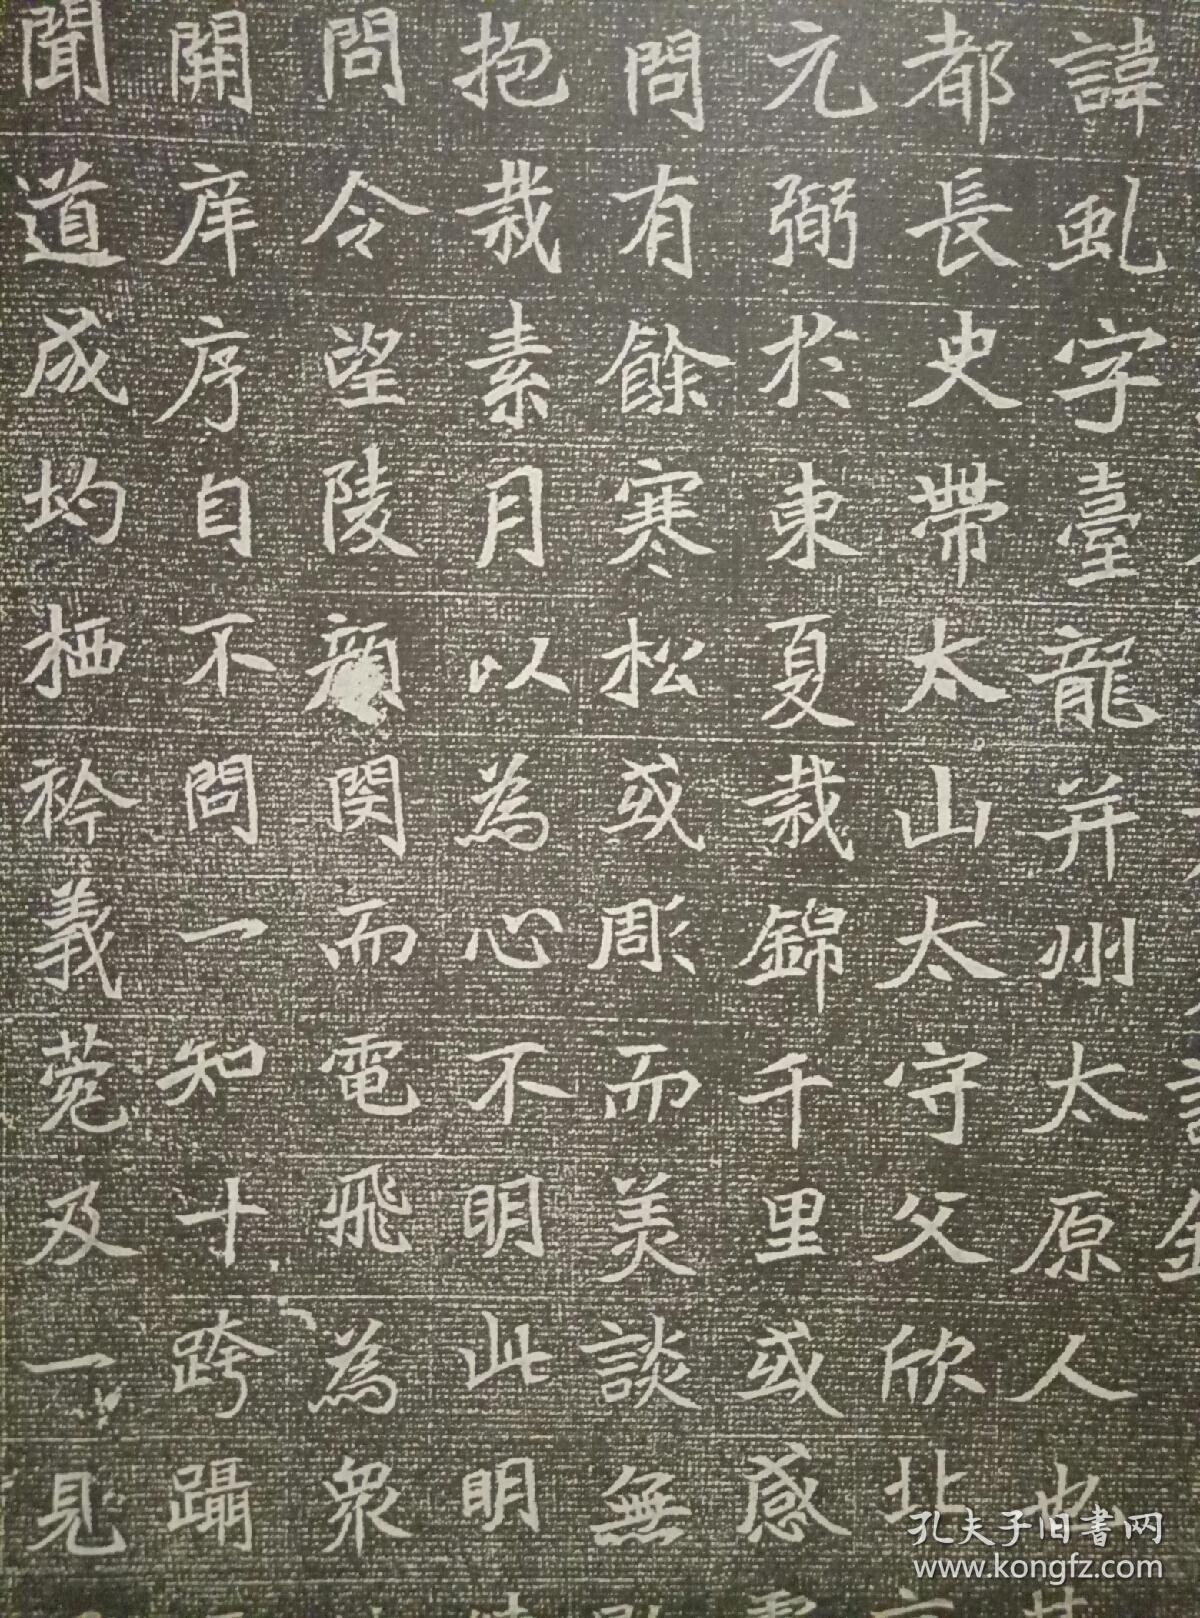 諱虬字臺龍并州太原人也
都長史帶太山太守父欣北
元弼於東夏栽錦千里或感
問有餘寒松或彫而美談無
抱栽素月以為心不明此明
問令望陵顏閔而電飛為衆
開庠序自不問一知十跨躡
聞道成均栖衿義菀及一見
孔夫子旧書网
www.kongfz.com